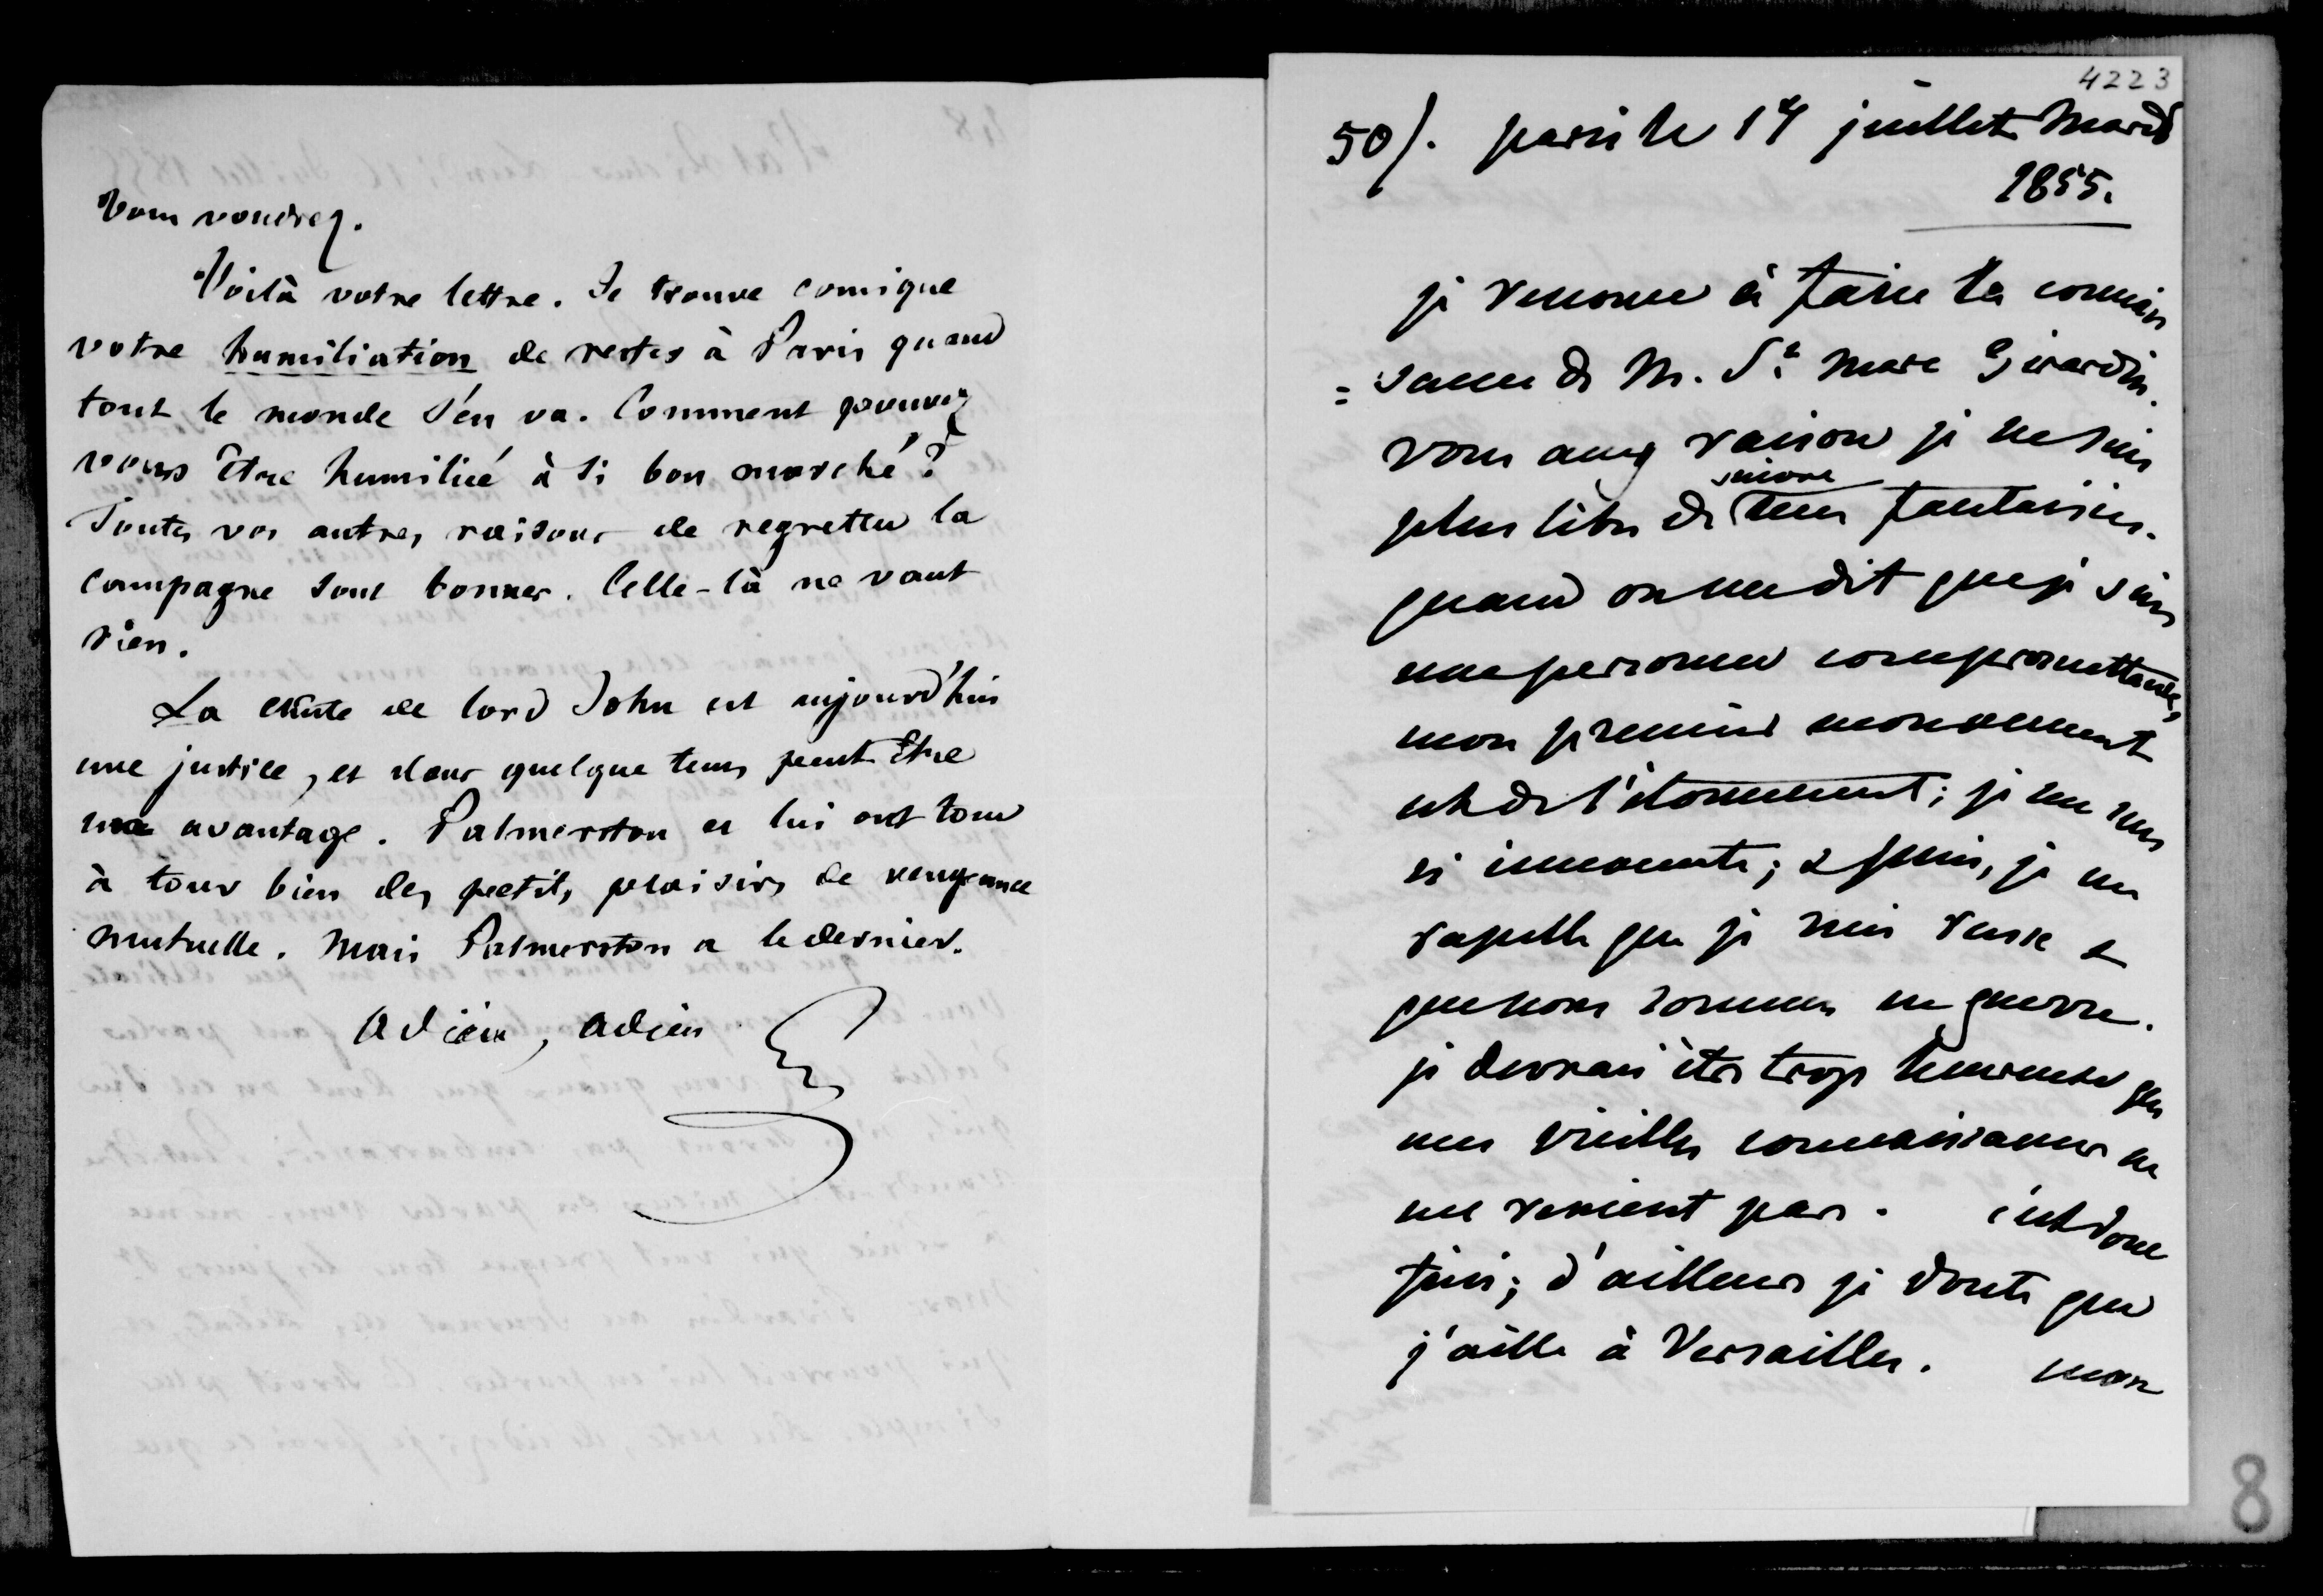 Vous voudrez.
Voilà votre lettre. Je trouve comique
votre humiliation de rester à Paris quand
tout le monde s'en va. Comment pouvez
vous être humiliée à si bon marché ?
Toutes vos autres raisons de regretter la
campagne sont bonnes. Celle-là ne vaut
rien.
La chute de lord John est aujourd'hui
une justice, et dans quelque tems peut être
un avantage. Palmerston et lui ont tour
à tour bien des petits plaisirs de vengeance
mutuelle. Mais Palmerston a le dernier.
Adieu, adieu
4223
50/. paris le 17 juillet Mardi
1855.
je renonce à faire la connais
=sance de M. St Marc Girardin.
vous avez raison je ne suis
plus libre de suivre mes fantaisies.
quand on me dit que je suis
une personne compromettante,
mon premier mouvement
est de l'étonnement ; je me sens
si innocente ; & puis, je me
rapelle que je suis russe &
que nous sommes en guerre.
je devrais être trop heureuse que
mes vieilles connaissances ne
me renient pas. c'est donc
fini ; d'ailleurs je doute que
j'aille à Versailles. mon
8